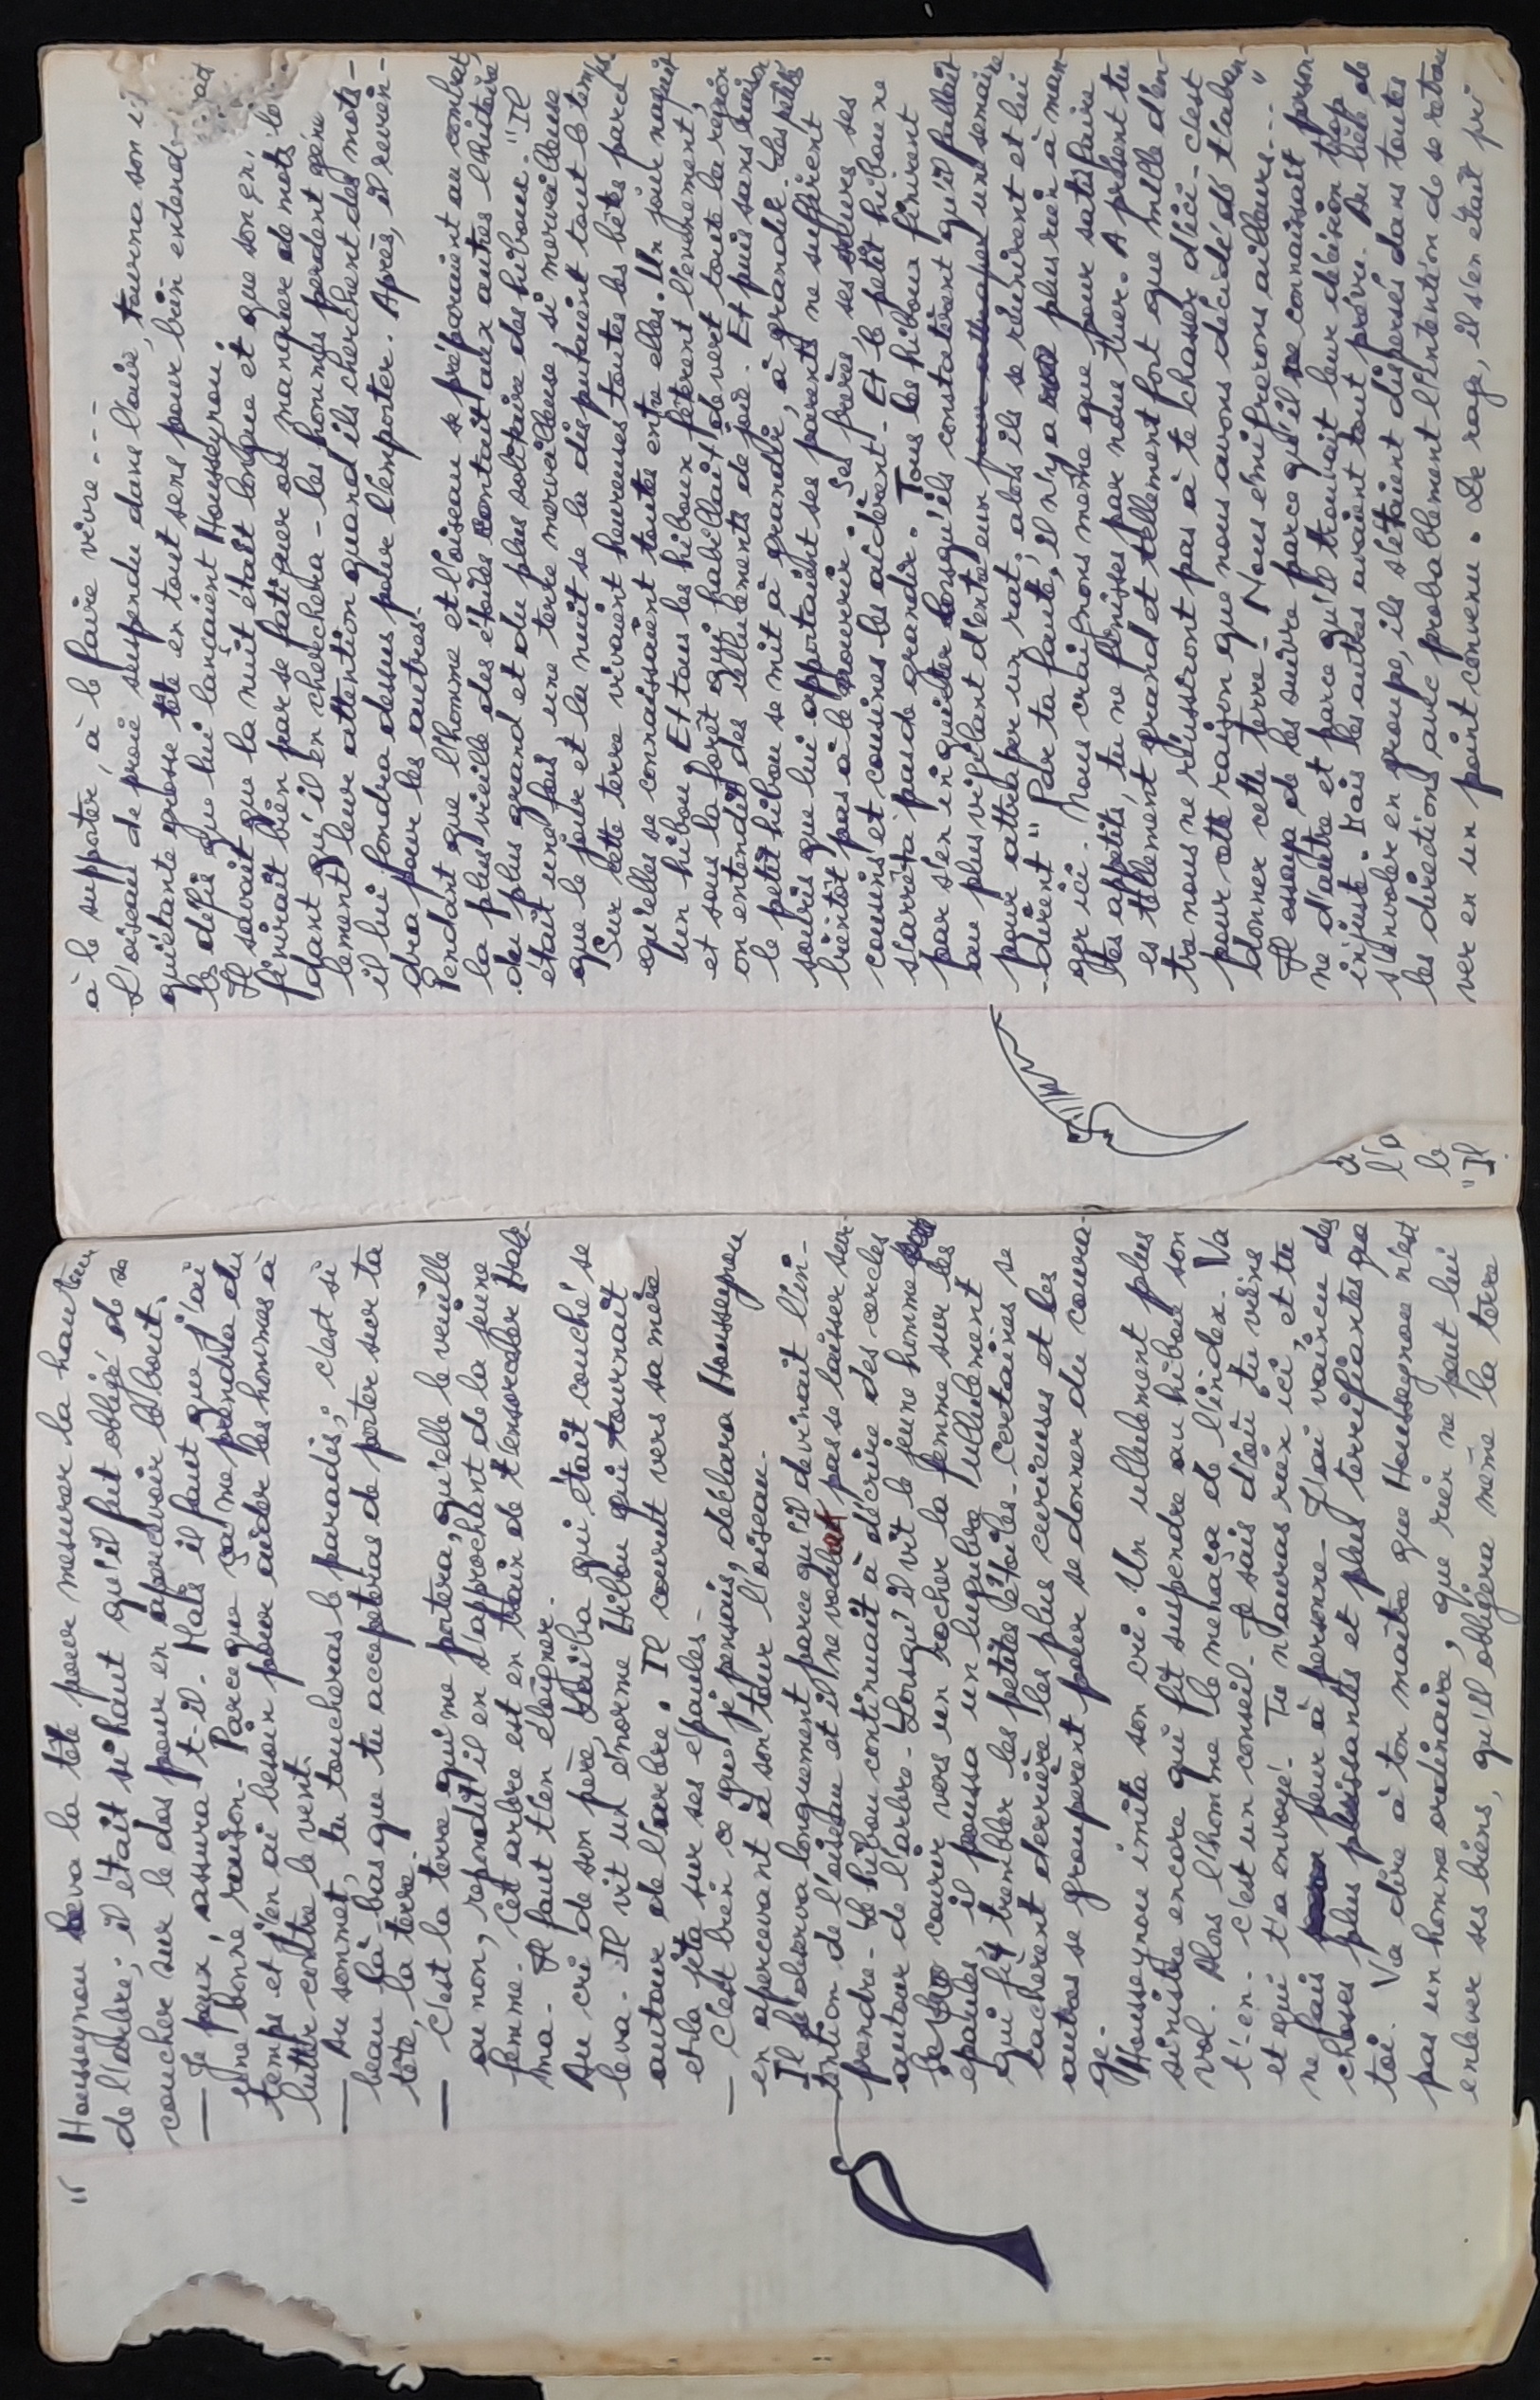 " Housseynou leva la tête pour mesurer la hauteur
de l'arbre; il était si haut qu'il fut obligé de se
coucher sur le dos pour en apercevoir le bout.
— Je peux, assura-t-il. Mais il faut que j'ai
une bonne raison. Parce que ça me prendra du
temps et j'en ai besoin pour aider les hommes à
lutter contre le vent.
— Au sommet, tu toucheras le paradis; c'est si
beau là-bas que tu accepteras de porter sur ta
tête, la terre.
— C'est la terre qui me portera, qu'elle le veuille
ou non, repondit il en s'approchant de la jeune
femme. Cet arbre est en train de t'ensorceler Hals
ma. Il faut t'en éloigner.
Au cri de son père, qui était couché se
leva. Il vit un énorme Hibou qui tournait
autour de l'arbre. Il courut vers sa mère
et la jeta sur ses épaules.
— C'est bien ce que je pensais, déclara Housseynou
en apercevant à son tour l'oiseau.
Il l'observa longuement parce qu'il devinait l'in-
tention de l'oiseau et il ne voulait pas se laisser sur-
prendre. Le hibou continuait à décrire des cercles
autour de l'arbre. Lorsqu'il vit le jeune homme
courir vers un rocher la femme sur les
épaules, il poussa un lugubre ululement
qui fit trembler les petites étoiles. Certaines se
cachèrent derrière les plus curieuses et les
autres se groupèrent pour se donner du coura-
ge.
Housseynou imita son cri. Un ululement plus
sinistre encore qui fit suspendre au hibou son
vol. Alors l'homme le menaça de l'index. Va
t'-en. C'est un conseil. Je sais d'où tu viens
et qui t'a envoyé. Tu n'auras rien ici, et tu
ne fais peur à personne. J'ai vaincu des
choses plus puissantes et plus terrifiantes que
toi. Va dire à ton maître que Housseynou n'est
pas un homme ordinaire, que rien ne peut lui
enlever ses biens, qu'il obligera même la terre
à le supporter, à le faire vivre ----
L'oiseau de proie suspendu dans l'air, tourna son i
quiétante grosse tête en tout sens pour bien entend
le défie que lui lançaient Housseynou.
Il savait que la nuit était longue et que son en
finirait bien par se fatiguer ou manquer de mots
dant qu'il en cherchera - les hommes perdent géné
lement leur attention quand ils cherchent des mots -
il lui fondra dessus pour l'emporter. Après, il revien-
dra pour les autres.
Pendant que l'homme et l'oiseau se préparaient au combat
la plus vieille des étoiles contait aux autres l'histoire
du plus grand et du plus solitaire des hiboux. "Il
était une fois une terre merveilleuse, si merveilleuse
que le jour et la nuit se la disputaient tout le temps
Sur cette terre vivaient heureuses toutes les bêtes parce
qu'elles se connaissaient toutes entre elles. Un jour naquit
un hibou. Et tous les hiboux fêtèrent l'evenement,
et sous la forêt qui habillait de vert toute la région
on entendit des ululements de joie. Et puis sans raison
le petit hibou se mit à grandir, à grandir. Les petits
souris que lui apportaient ses parents ne suffirent
bientôt pas à le nourrir. Ses frères, ses sœurs ses
cousins et cousines les aidèrent. Et le petit hibou ne
s'arrêta pas de grandir. Tous les hiboux finirent
par s'en inquiéter lorsqu'ils constatèrent qu'il fallait
au plus vigilant d'entre eux pour attraper une semaine
pour attraper un rat; alors ils se réunirent et lui
dirent " Par ta faute, il n'y a plus rien à man
ger ici. Nous craignons même que pour satisfaire
tes appetits, tu ne finisses par nous tuer. A présent tu
es tellement grand et tellement fort que mille d'en-
tre nous ne réussiront pas à te chasser d'ici - c'est
pour cette raison que nous avons décidé de t'aban-
donner cette terre. Nous émigrerons ailleurs ---- "
Il essaya de les suivre parce qu'il ne connaissait person-
ne d'autre et parce qu'il trouvait leur décision trop
injuste. Mais les autres avaient tout prévu. Au lieu de
s'envoler en groupe, ils s'étaient dispersés dans toutes
les directions avec probablement l'intention de se retrou
ver en un point convenu. De rage, il s'en était pri
à
l'o
le
"Il